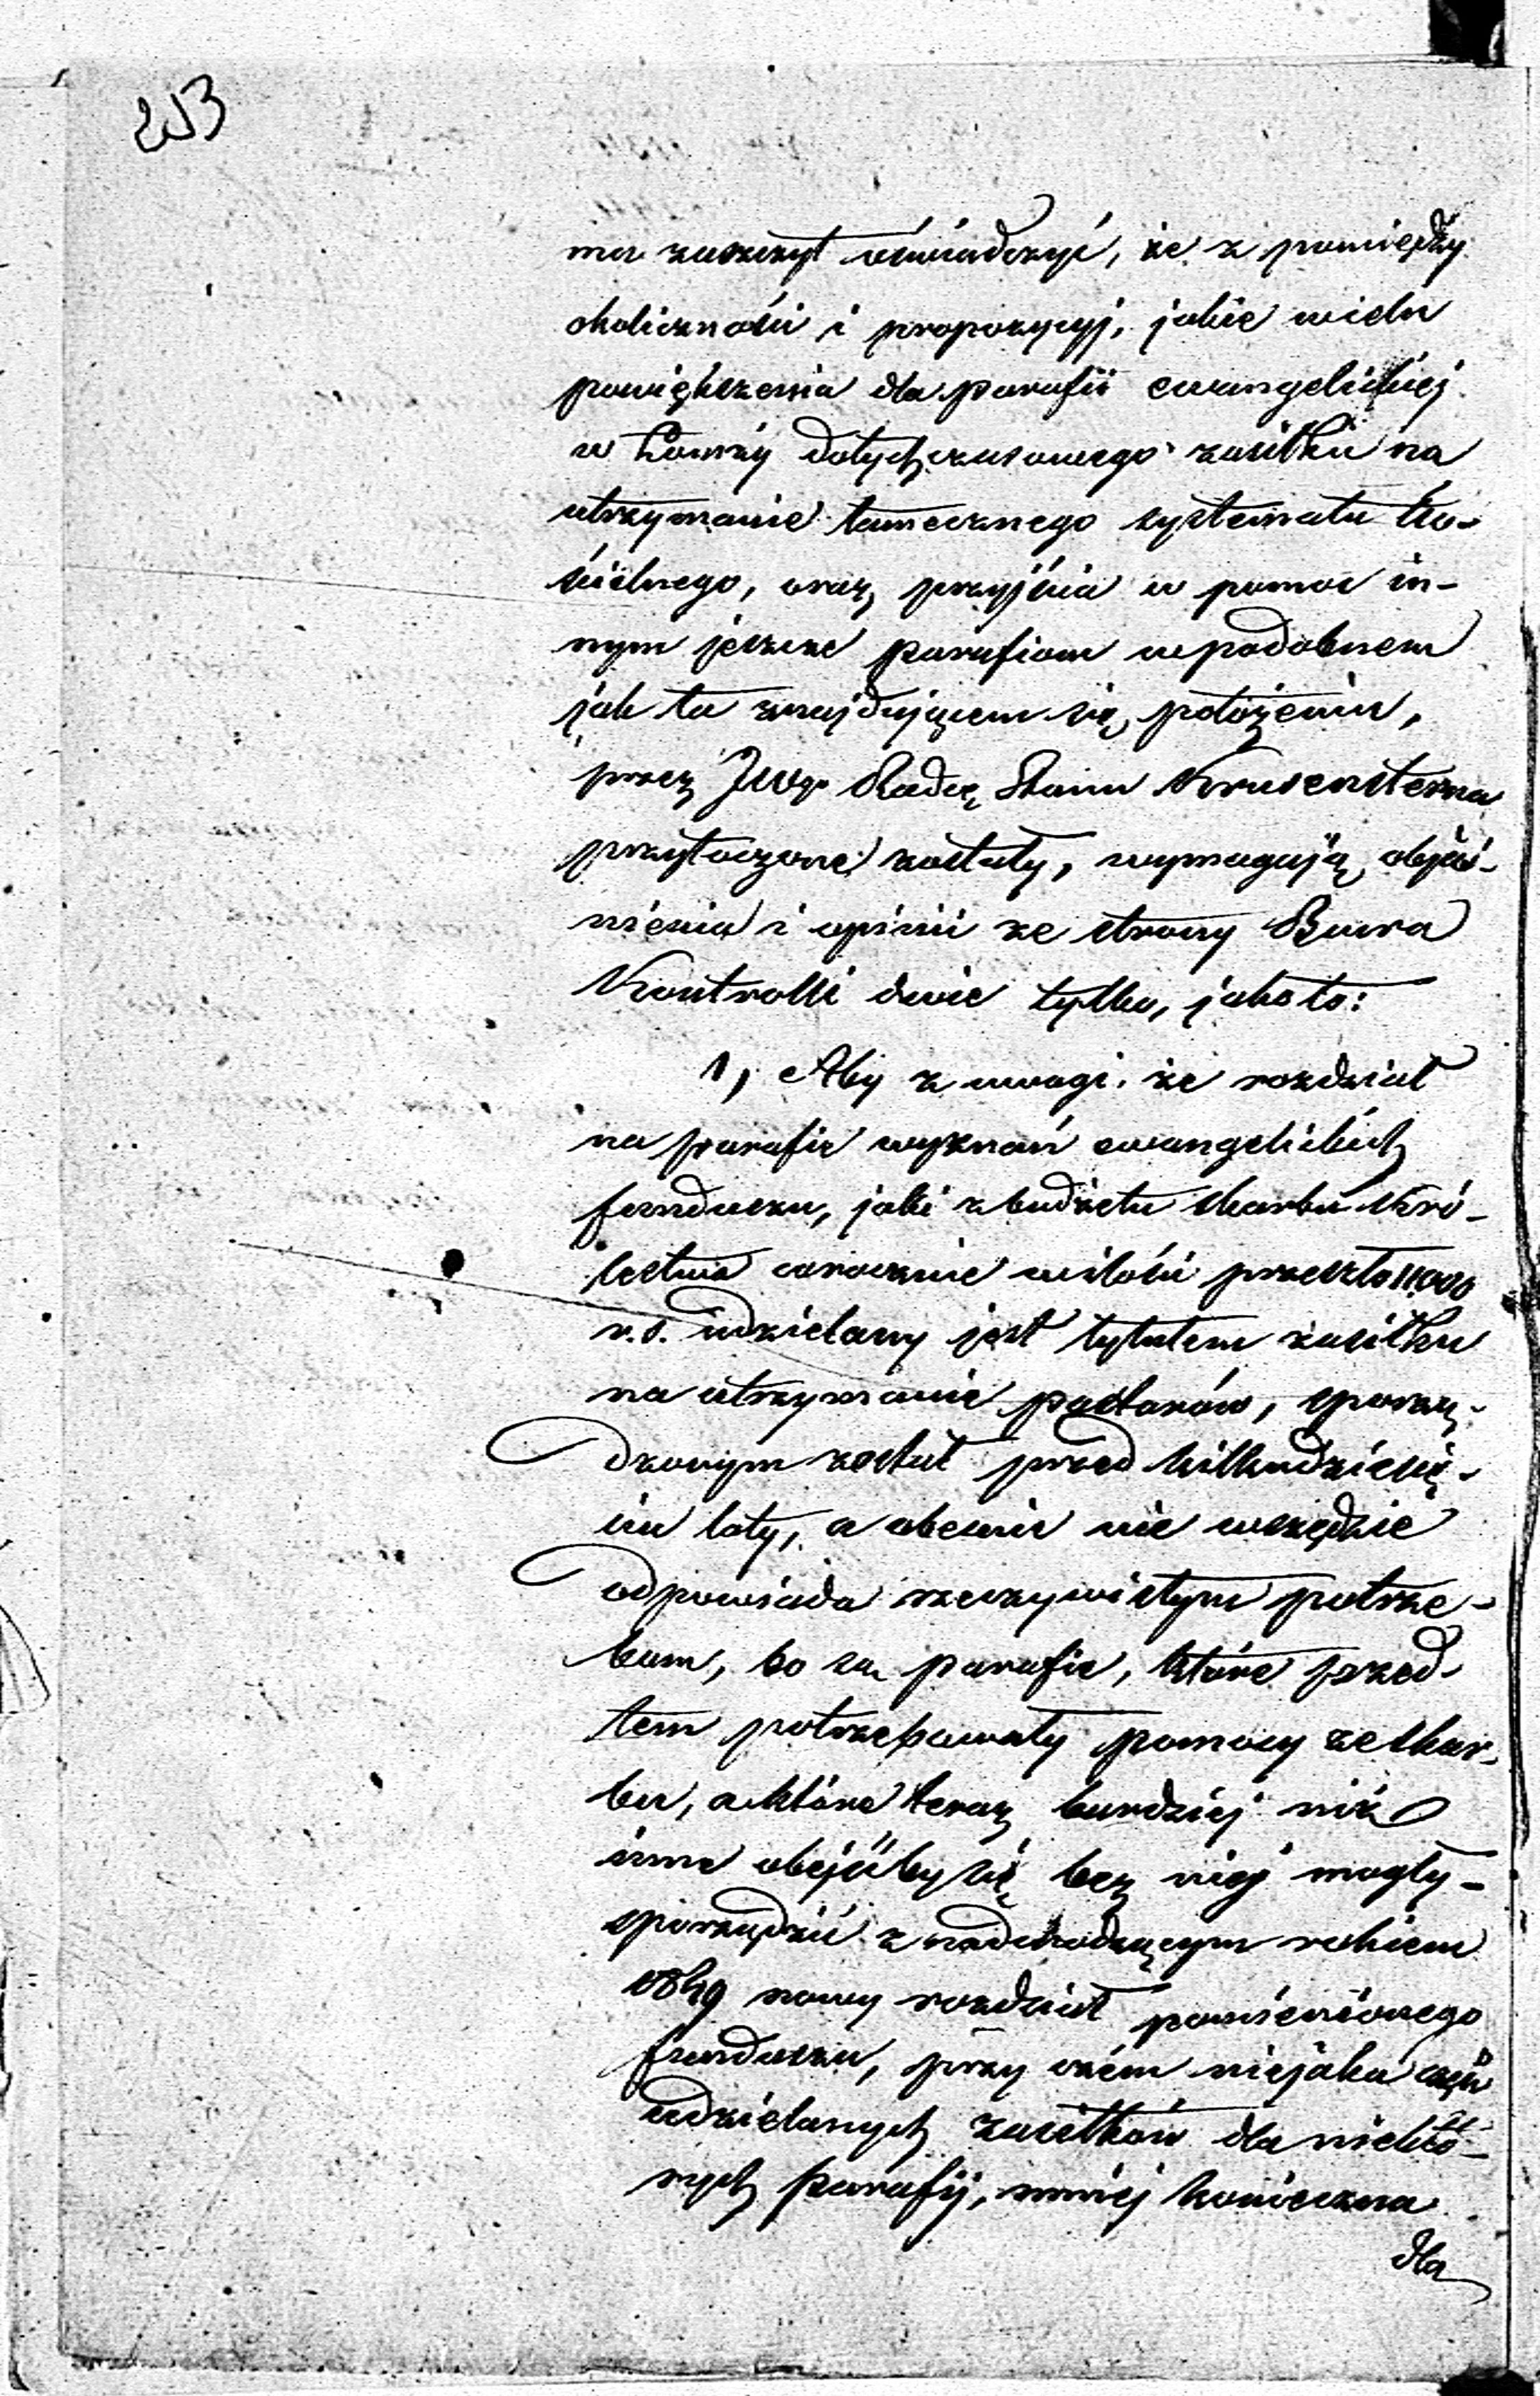 253
ma zaszczyt oświadczyć, że z pomiędzy
okoliczności i propozycyj, jakie wielu
powiększenia dla parafii ewangelickiej
w Łomży dotychczasowego zasiłku na
utrzymanie tamecznego systematu ko-
ścielnego, oraz przyjścia w pomoc in-
nym jeszcze parafiom w podobnem
jak ta znajdującem się położeniu,
przez JWgo Radcę Stanu Kruzensterna
przytoczone zostały, wymagają objaś-
nienia i opinii ze strony Biura
Kontrolli dwie tylko, jako to:
1, Aby z uwagi, że rozdział
na parafie wyznań ewangelickich
funduszu, jaki z budżetu skarbu Kró-
lestwa corocznie w ilości przeszło 11000
r.s. udzielany jest tytułem zasiłku
na utrzymanie pastorów, sporzą-
dzonym został przed kilkudziesię-
ciu laty, a obecnie nie wszędzie
odpowiada rzeczywistym potrze-
bom, bo są parafie, które przed-
tem potrzebowały pomocy ze skar-
bu, a które teraz bardziej niż
inne obejśćby się bez niej mogły -
sporządzić z nadchodzącym rokiem
1849 nowy rozdział pomienionego
funduszu, przy czém niejaka część
udzielanych zasiłków dla niektó-
rych parafij, mniej konieczna
dla